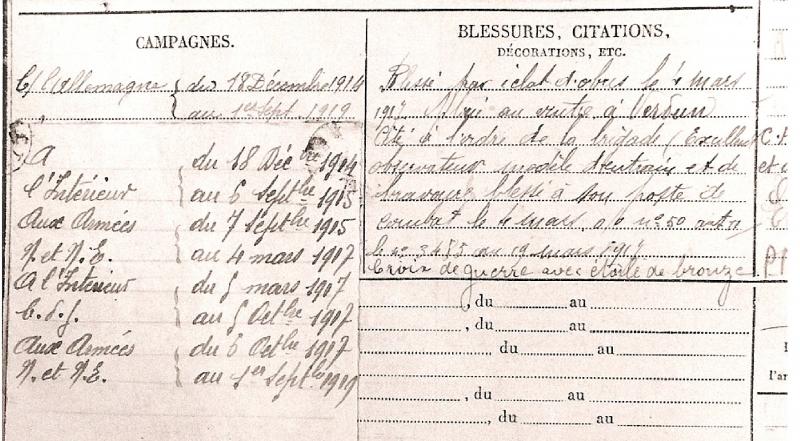 CAMPAGNES.
C/ l'Allemagne du 18 Décembre 1914
" au 1er Sept. 1919
A du 18 Décbre 1914
l'Intérieur au 6 Septbre 1915
Aux Armées du 7 Septbre 1915
N. et N.E. au 4 mars 1917
A l'Intérieur du 5 mars 1917
C.d.g. au 5 Octbre 1917
Aux Armées du 6 Octbre 1917
N. et N.E. au 1er Septbre 1919
BLESSURES, CITATIONS,
DÉCORATIONS, ETC.
Blessé par éclat d'obus le 4 mars
1917 au ventre à Verdun
Cité à l'ordre de la brigade (Excellent
observateur modèle d'entrain et de
bravoure blessé à son poste de
combat le 4 mars. no 50
19 mars 1917
Croix de guerre avec étoile de bronze
, du au
, du au
du au
, du au
, du au